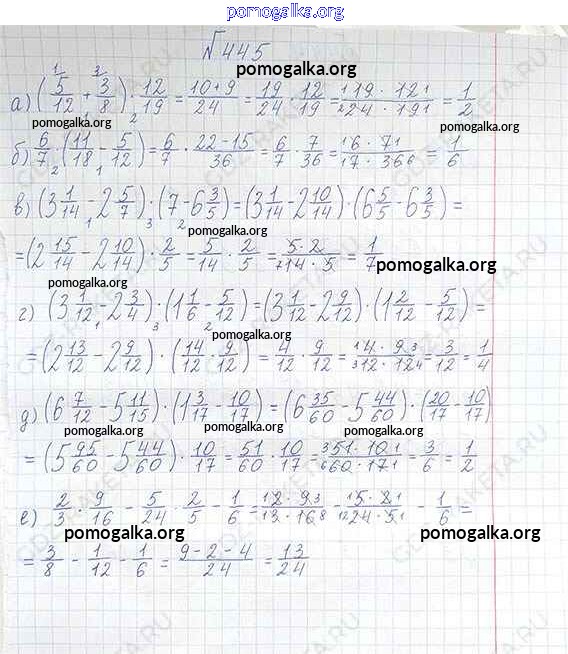 pomogalka.org
№445
pomogalka.org
а) (5/12 + 3/8) · 12/19 = (10+9)/24 = 19/24 · 12/19 = (19 · 12)/(24 · 19) = 1/2
pomogalka.org pomogalka.org
б) 6/7 · (11/18 - 5/12) = 6/7 · (22-15)/36 = 6/7 · 7/36 = (6 · 7)/(7 · 36) = 1/6
pomogalka.org
в) (3 1/14 - 2 5/7) · (7 - 6 3/5) = (3 1/14 - 2 10/14) · (6 5/5 - 6 3/5) =
pomogalka.org
= (2 15/14 - 2 10/14) · 2/5 = 5/14 · 2/5 = (5 · 2)/(14 · 5) = 1/7
pomogalka.org
pomogalka.org
г) (3 1/12 - 2 3/4) · (1 1/6 - 5/12) = (3 1/12 - 2 9/12) · (1 2/12 - 5/12) =
pomogalka.org
= (2 13/12 - 2 9/12) · (14/12 · 9/12) = 4/12 · 9/12 = (4 · 9)/(12 · 12) = 3/12 = 1/4
д) (6 7/12 - 5 11/15) · (1 3/17 - 10/17) = (6 35/60 - 5 44/60) · (20/17 - 10/17)
pomogalka.org pomogalka.org pomogalka.org
= (5 95/60 - 5 44/60) · 10/17 = 51/60 · 10/17 = (51 · 10)/(60 · 17) = 3/6 = 1/2
е) 2/3 · 9/16 - 5/24 · 2/5 - 1/6 = (2 · 9)/(3 · 16) - (5 · 2)/(24 · 5) - 1/6 =
pomogalka.org pomogalka.org pomogalka.org
= 3/8 - 1/12 - 1/6 = (9-2-4)/24 = 13/24